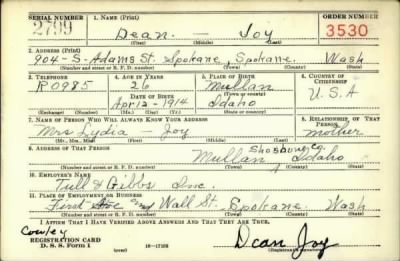 SERIAL NUMBER 1. NAME (Print) ORDER NUMBER
2799 Dean - Joy 3530
(First) (Middle) (Last)
2. ADDRESS (Print)
904-S-Adams St. Spokane, Spokane. Wash
(Number and street or R. F. D. number) (Town) (County) (State)
3. TELEPHONE 4. AGE IN YEARS 5. PLACE OF BIRTH 6. COUNTRY OF CITIZENSHIP
R0985 26 Mullan U.S.A
DATE OF BIRTH (Town or county)
Apr 12 - 1914 Idaho
(Exchange) (Number) (Mo.) (Day) (Yr.) (State or country)
7. NAME OF PERSON WHO WILL ALWAYS KNOW YOUR ADDRESS 8. RELATIONSHIP OF THAT PERSON
Mrs Lydia - Joy Mother
(Mr., Mrs., Miss) (First) (Middle) (Last)
9. ADDRESS OF THAT PERSON
Mullan Shoshone Co. Idaho
(Number and street or R. F. D. number) (Town) (County) (State)
10. EMPLOYER'S NAME
Tull & Gibbs Inc.
11. PLACE OF EMPLOYMENT OR BUSINESS
First Ave and Wall St. Spokane Wash
(Number and street or R. F. D. number) (Town) (County) (State)
I AFFIRM THAT I HAVE VERIFIED ABOVE ANSWERS AND THAT THEY ARE TRUE.
Cowley
REGISTRATION CARD
D. S. S. Form 1 (over) 16-17105
Dean Joy